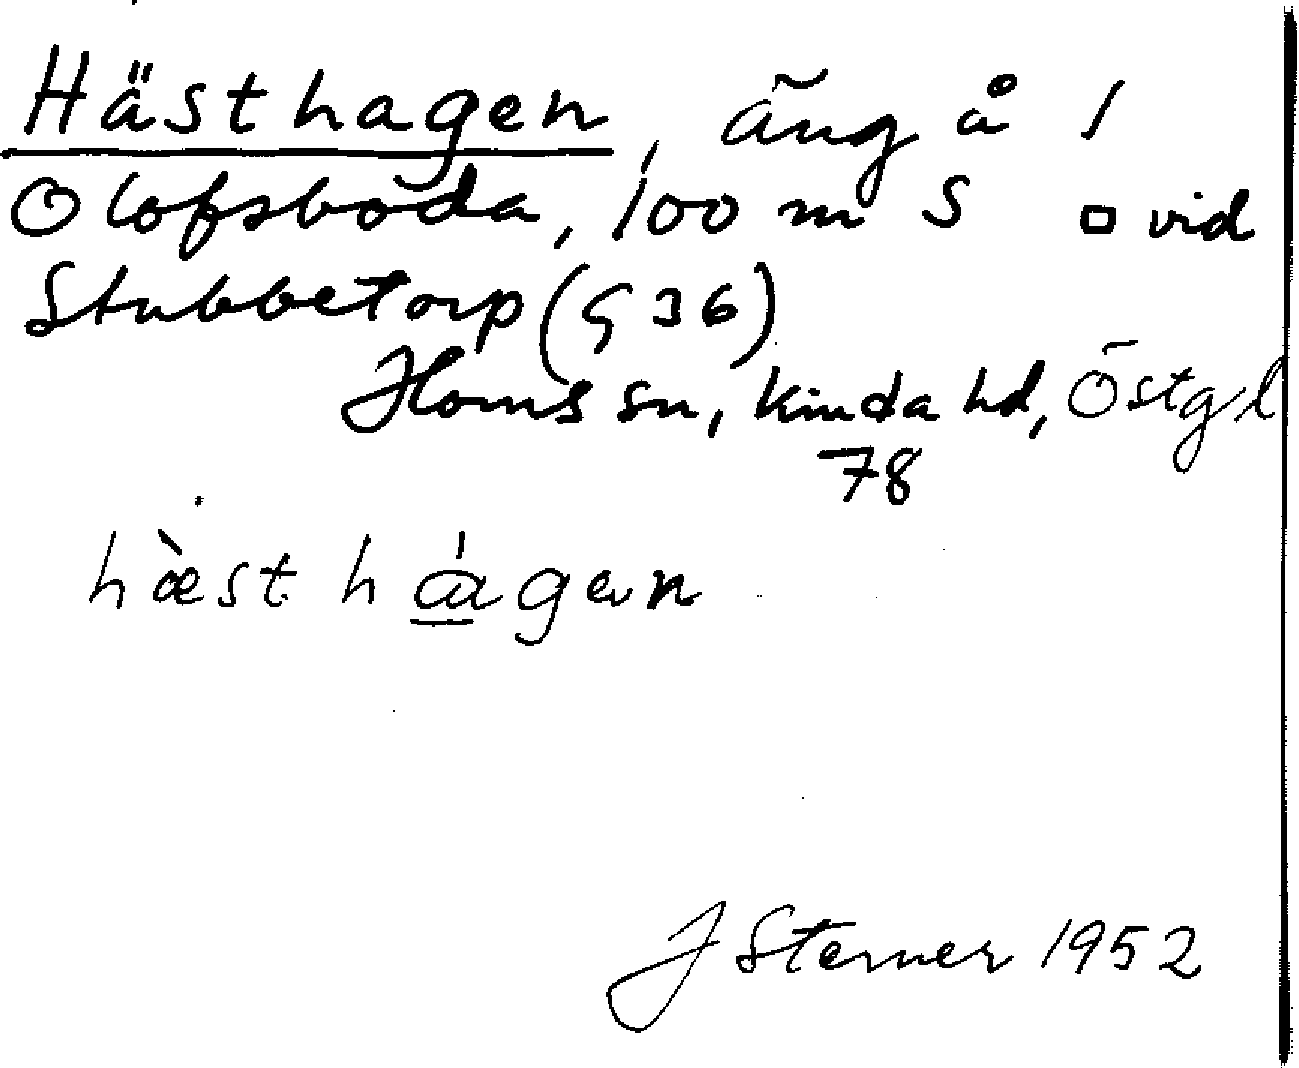 Hästhagen, äng å 1
Olofsboda, 100 m S □ vid
Stubbetorp (S 36)
Horns sn, Kinda hd, Östgl
78
hæ̀st hɑ́gen
J Sterner 1952